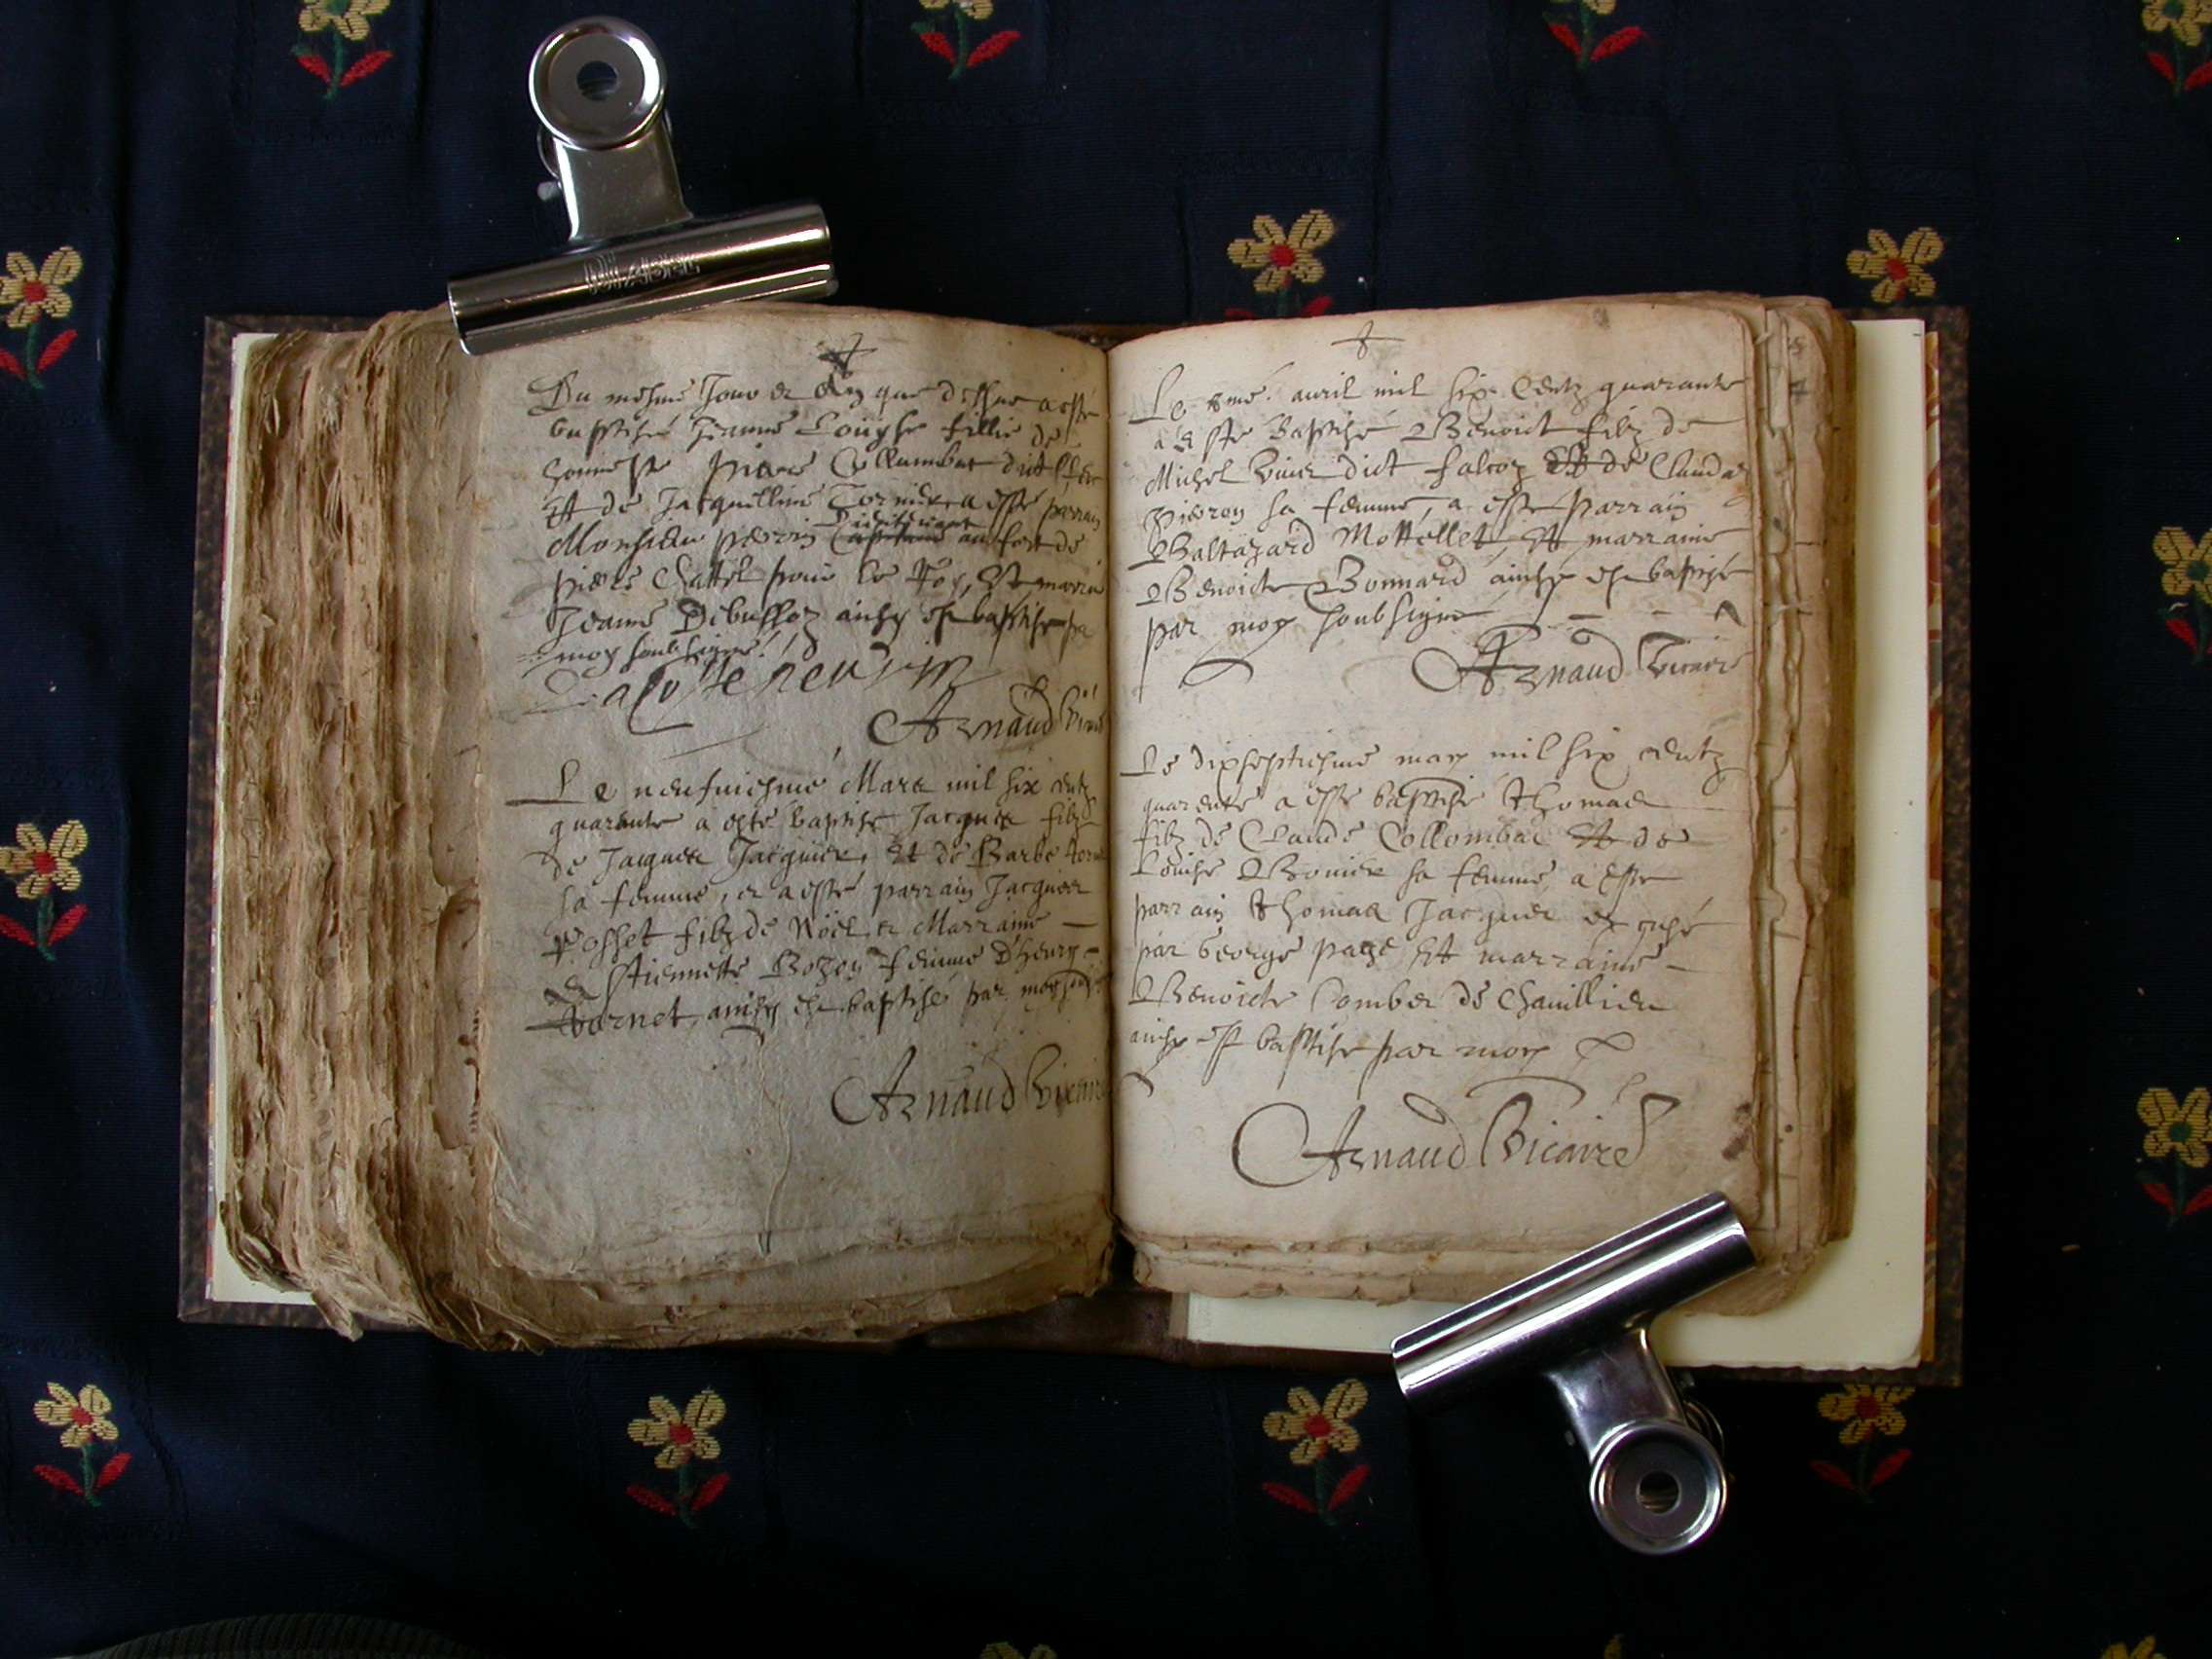 Du mesme Jour et an que dessus a esté
baptisée Jeanne Louyse fillie de
honneste Pierre Collumbat dict
Et de Jacquilline Tornier a esté parrain
Monsieur Perrin Lieutenant au fort de
Pierre Chattel pour le Roy, Et marrine
Jeanne Debussoz ainsy est baptisée pa
moy soubsigné
Arnaud Vicaire
Le neufviesme Mars mil six centz
quarante a esté baptisé Jacques filz
de Jacques Jacquier, Et de Barbe
sa femme, et a esté parrain Jacques
Posset filz de Noël et Marraine
Estiennette Bozon femme d'henry
Tornet, ainsy est baptisé par moy
Arnaud Vicaire
Le avril mil six Centz quarante
a esté baptisé Benoict filz de
Michel dict falcoz Et de Clauda
Pierron sa femme, a esté parrain
Baltazard Mottellet, Et marraine
Benoicte Bonnard ainsy est baptisé
par moy soubsigné
Arnaud Vicaire
Le dixseptiesme may mil six centz
quarente a esté baptisé Thomas
filz de Claude Collombat Et de
Louise sa femme, a esté
parrain Thomas Jacquier
par George Et marraine
Benoicte Comber de Chanillieu
ainsy est baptisé par moy
Arnaud Vicaire